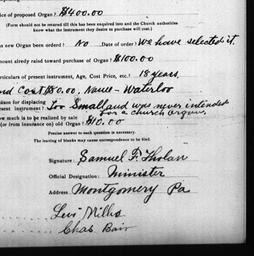 of proposed Organ? $400.00
(Form should not be returned till this has been enquired into and the Church authorities
know what the instrument they desire to purchase will cost.)
new Organ been ordered? No Date of order? We have selected it.
mount already raid toward purchase of Organ? $100.00
Particulars of present instrument, Age, Cost Price, etc.? 18 years
Cost $80.00, Name - Waterloo
ason for displacing
present instrument? Too Small and was never intended
for a church organ.
much is to be realized by sale
(or from insurance on) old Organ? $10.00
Precise answer to each question is necessary.
The leaving of blanks may cause correspondence to be filed.
Signature: Samuel F.
Official Designation: Minister
Address Montgomery Pa
Levi Mills
Chas Bair